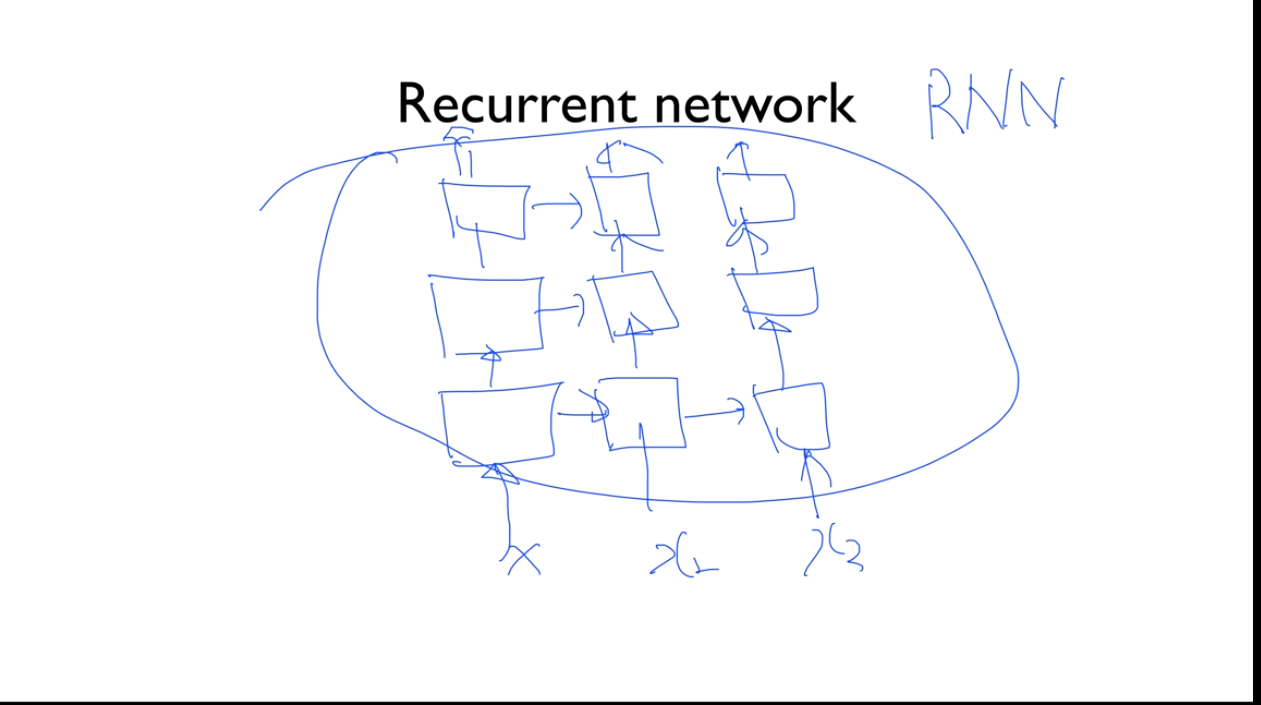 Recurrent network RNN
x x1 x2